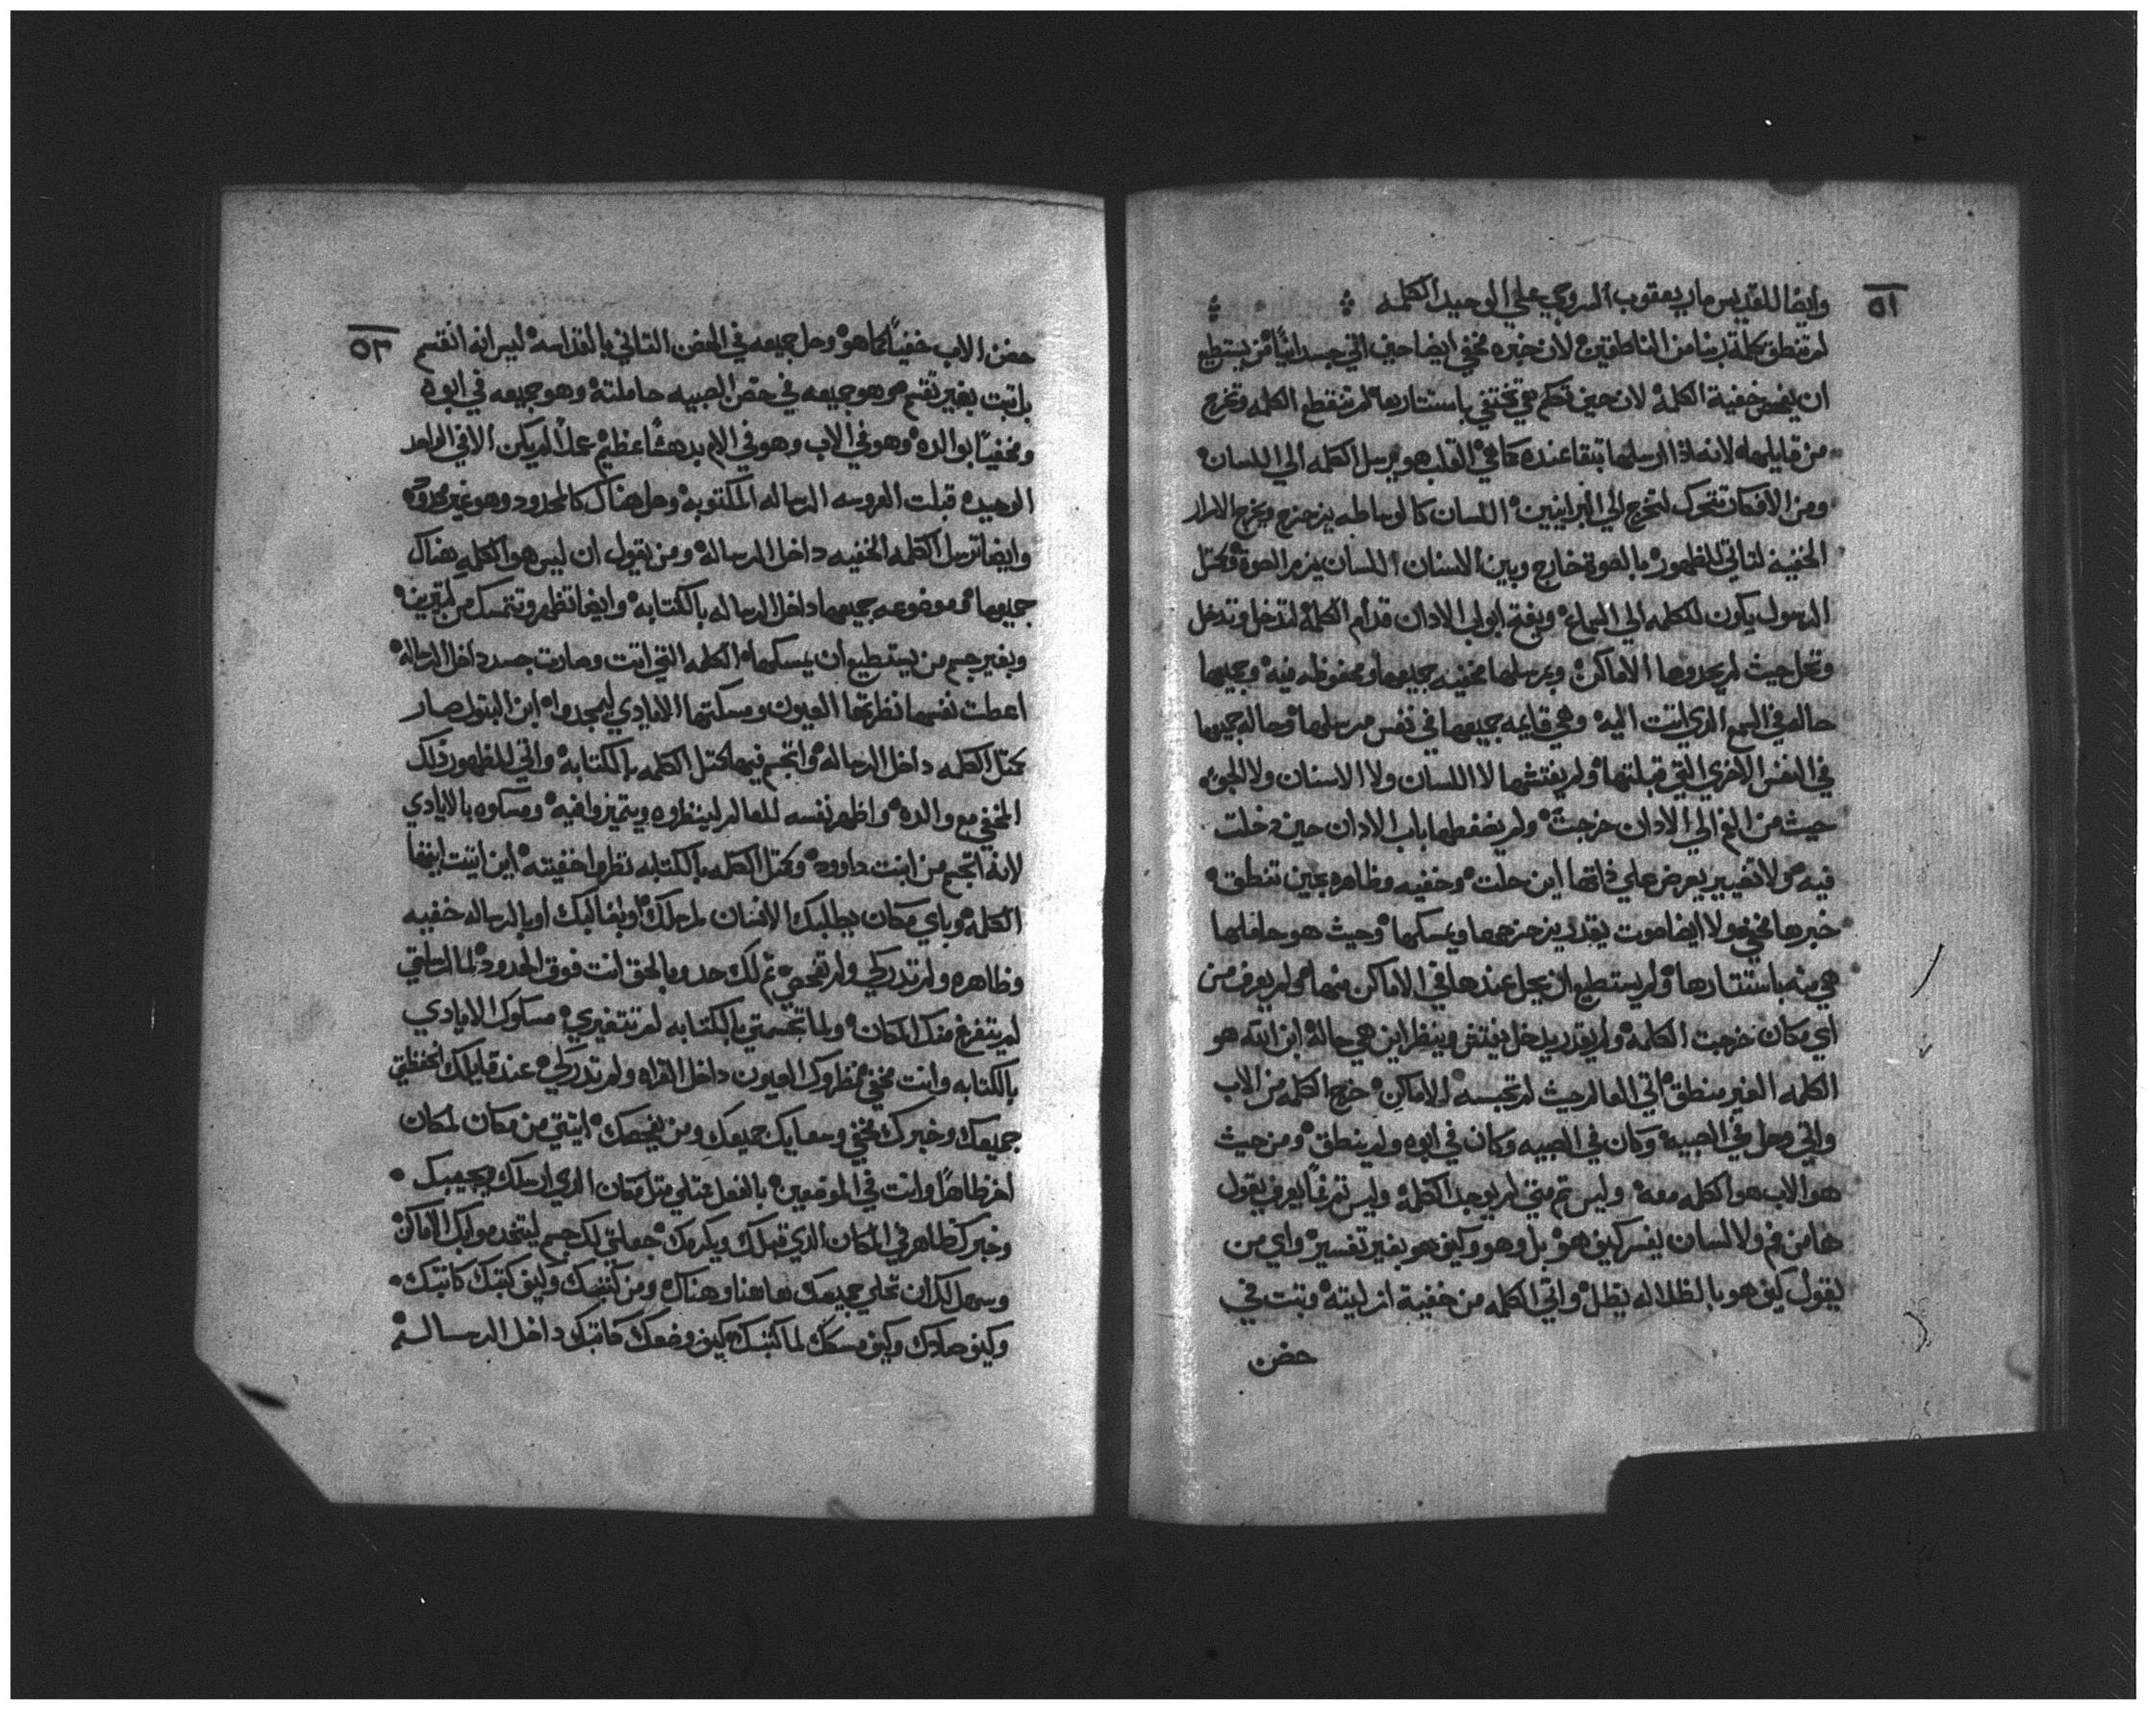 ٥١
وايضا للقديس مار يعقوب السروجي علي الوحيد الكلمه
لم تنطق كلمة ربنا من الناطقين لان خبره مخفي ايضا حين اتي جسدانيًا من يستطيع
ان يفحص خفية الكلمة لان حين تتكلم هي تختفي باستتارها لم تنقطع الكلمه وتخرج
من قايلها لانه اذا ارسلها تبقا عنده كما هي القلب هو يرسل الكلمه الي اللسان
ومن الافكار تتحرك لتخرج الي البرانيين اللسان كالوساطه يزحزح ويخرج الاسرار
الخفيه لتاتي للظهور بالصوت خارج وبين الاسنان اللسان يزمر الصوت وكمتل
الرسول يكون للكلمه الي السماع ويفتح ابواب الادان قدام الكلمة لتدخل وتدخل
وتحل حيث لم يحدوها الاماكن ويرسلها مخفيه جميعها ومحفوظه فيه وجميعها
حاله في السمع الدي اتت اليه وهي قايمه جميعها في نفس مرسلها وحاله جميعها
في النفس الاخري التي قبلتها ولم يفتشها لا اللسان ولا الاسنان ولا الجو
حيث من الفم الي الادان خرجت ولم يضغطها باب الادان حين دخلت
فيه ولا تغيير يعرض علي داتها اين حلت وخفيه وظاهره حين تنطق
خبرها مخفي ولا ايضا صوت يقدر يزحزحها ويمسكها وحيث هو حاملها
هي فيه باستتارها ولم يستطيع ان يحل عندها في الاماكن منها ولم يعرف من
اي مكان خرجت الكلمه ولم يقدر يدخل يفتش وينظر اين هي حالة ابن الله هو
الكلمه الغير منطق اتي العالم حيث لم تحبسه الاماكن خرج الكلمه من الاب
واتي وحل في الصبيه وكان في الصبيه وكان في ابوه ولم ينطق ومن حيث
هو الاب هو الكلمه معه وليس تم متي لم يوجد الكلمة وليس يعرف يقول
ها من فم ولا لسان يفسر كيف هو بل وهو وكيف هو بغير تفسير واي من
يقول كيف هو بالظلاله يظل واتي الكلمه من خفية ازليته وتبت في
حضن
٥٢
حضن الاب خفيًا كما هو وحل جميعه في الحضن التاني بالقداسه ليس انه انقسم
بل تبت بغير تقسم وهو جميعه في حضن الصبيه حاملته وهو جميعه في ابوه
ومخفيًا بوالده وهو في الاب وهو في الام بدهشًا عظيم عملًا لم يكن الا في الواحد
الوحيد قبلت العروسه الرساله المكتوبه وحل هناك كالمحدود وهو غير محدود
وايضا ترسل الكلمه الخفيه داخل الرسالة ومن يقول ان ليس هو الكلمه هناك
جميعها وموضوعه جميعها داخل الرساله بالكتابه وايضا تظهر وتتمسك من
وبغير جسم من يستطيع ان يمسكها الكلمه التي اتت وصارت جسد داخل الرسالة
اعطت نفسها نظرتها العيون ومسكتها الايادي ليمجدوا ابن البتول صار
كمتل الكلمه داخل الرسالة واتجسم فيها كمتل الكلمه بالكتابه واتي للظهور دلك
المخفي مع والده واظهر نفسه للعالم لينظروه ويتميزوا فيه ومسكوه بالايادي
لانه اتجسم من ابنت داوود وكمتل الكلمه بالكتابه نظروا خفيته اين انتت ايتها
الكلمه وباي مكان يطلبك الانسان بمرسلك او بقالبك او بالرساله خفيه
وظاهره ولم تدركي ولم تفحصي تم لك حد وبالحق انت فوق الحدود لما ارسلتي
لم يتفرغ منك المكان ولما تجسمتي بالكتابه لم تتغيري مسكوك الايادي
بالكتابه وانت مخفي نظروك العيون داخل القراه ولم تدركي عند قايلك انحفظتي
جميعك وخبرك مخفي وسعايك جميعك ومن يفحصك اتيتي من مكان لمكان
اخر ظاهرًا وانت في الموضعين بالفعل متل مكان الدي ارسلك بجميعك
وخبرك ظاهر في المكان الدي قبلك ويكرمك جعلتي لك جسم ليتخدموا بك الاماكن
وسهل لك ان تحلي جميعك هاهنا وهناك ومن كتبك وكيف كتبك كاتبك
وكيف صادك وكيف مسكك لما كتبك وكيف وضعك كاتبك داخل الرساله